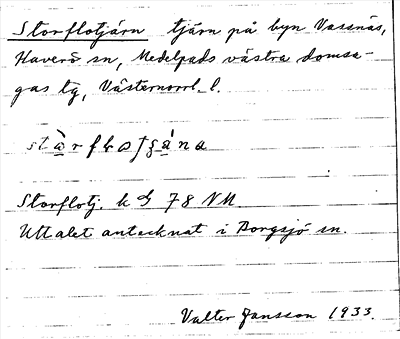 Storflotjärn tjärn på byn Vassnäs,
Haverö sn, Medelpads västra domsa-
gas tg, Västernorrl. l.
Storflotj. k bl 78 NM.
Uttalet antecknat i Borgsjö sn.
Valter Jansson 1933.